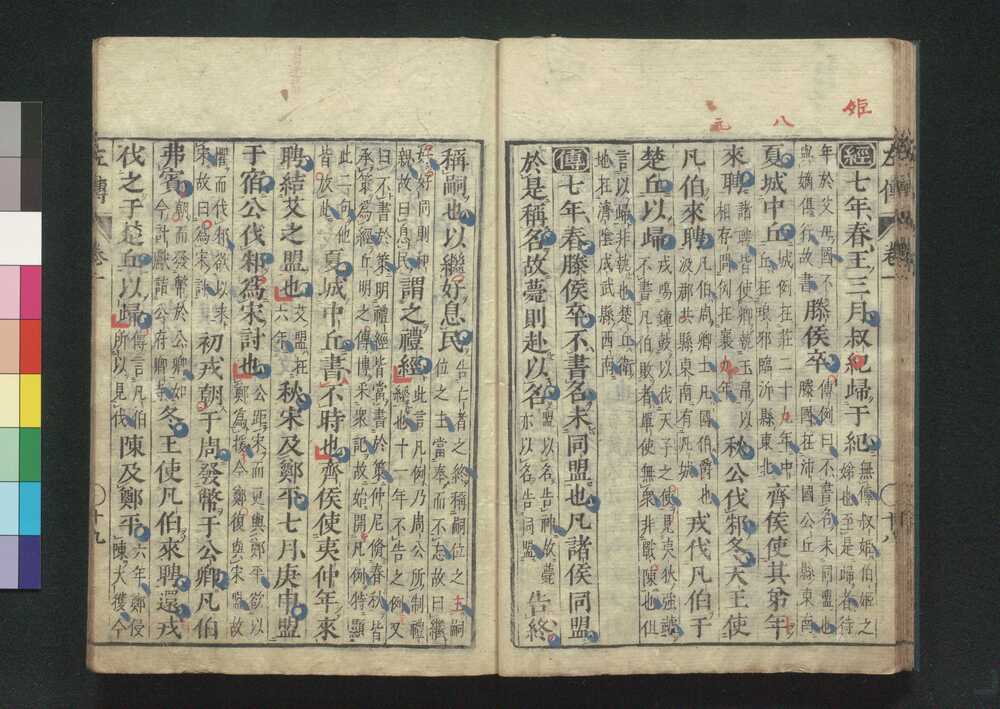 姫
八
元
經七年、春、王三月叔姫歸于紀 無傳叔姫伯姬之娣也至是歸者待
年於父母國不與嫡俱行故書 滕侯卒 傳例曰不書名未同盟也滕國在沛國公丘縣東南
夏城中丘 城例在莊二十九年中丘在琅邪臨沂縣東北 齊侯使其弟年
來聘 諸聘皆使卿執玉帛以相存問例在襄九年 秋公伐邾冬天王使
凡伯來聘 凡伯周卿士凡國伯爵也汲郡共縣東南有凡城 戎伐凡伯于
楚丘以歸 戎鳴鐘鼓以伐天子之使見夷狄強虣不書凡伯敗者單使無衆非戰陳也但
言以歸非執也楚丘衛地在濟陰成武縣西南
傳七年、春滕侯卒不書名未同盟也凡諸侯同盟
於是稱名故薨則赴以名 盟以名告神故薨亦以名告同盟 告終
稱嗣也以繼好息民 告亡者之終稱嗣位之主嗣位之主當奉而不忘故曰繼
好好同則和親故曰息民 謂之禮經 此言凡例乃周公所制禮經也十一年不告之例又
曰不書於策明禮經皆當書於策仲尼脩春秋皆承策爲經丘明之傳博采衆記故始開凡例特顯
此二句他皆放此 夏城中丘書不時也齊侯使夷仲年來
聘結艾之盟也 艾盟在六年 秋宋及鄭平七月庚申盟
于宿公伐邾爲宋討也 公距宋而更與鄭平欲以鄭爲援今鄭復與宋盟故
懼而伐邾欲以求宋故曰爲宋討 初戎朝于周發幣于公卿凡伯
弗賓 朝而發幣於公卿如今計獻詣公府卿寺 冬王使凡伯來聘還戎
伐之于楚丘以歸 傳言凡伯所以見伐 陳及鄭平 六年鄭侵陳大獲今
左傳 卷一 十九